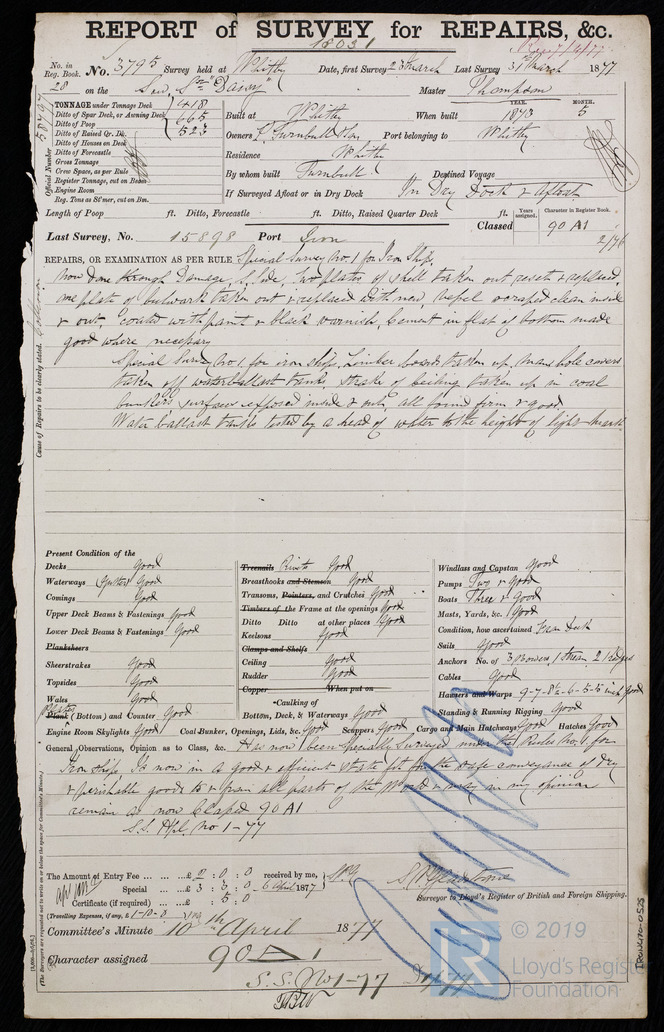 REPORT of SURVEY for REPAIRS, &c.
18031
No. in Reg. Book. No. 3795 Survey held at Whitby Date, first Survey 23 March Last Survey 31 March 1877
28 on the Sr. "Daisy" Master Thompson
TONNAGE under Tonnage Deck
Ditto of Spar Deck, or Awning Deck 665
Ditto of Poop
Ditto of Raised Qr. Dk. 523
Ditto of Houses on Deck
Ditto of Forecastle
Gross Tonnage
Crew Space, as per Rule
Register Tonnage, cut on Beam
Engine Room
Reg. Tons as St'mer, cut on Bm.
Official Number
Built at Whitby When built YEAR. 1873 MONTH. 5
Owners Turnbull & Son Port belonging to Whitby
Residence Whitby
By whom built Turnbull Destined Voyage
If Surveyed Afloat or in Dry Dock In Dry Dock & Afloat
Length of Poop ft. Ditto, Forecastle ft. Ditto, Raised Quarter Deck ft.
Classed Years assigned. Character in Register Book. 90 A1
2/76
Last Survey, No. 15898 Port Iron
REPAIRS, OR EXAMINATION AS PER RULE Special Survey No. 1 for Iron Ship.
Now done through Damage, Side, Two plates of shell taken out reset & replaced,
one plate of bulwark taken out & replaced with new, Vessel scraped clean inside
& out, coated with paint & black varnish, Cement in flat of bottom made
good where necessary
Special Survey No. 1, for iron ship, Limber boards taken up, man hole covers
taken off waterballast tanks, strake of ceiling taken up in coal
bunkers, surfaces exposed inside & out, all found firm & good.
Water ballast tanks tested by a head of water to the height of light mark.
Cause of Repairs to be clearly stated. Collision
Present Condition of the
Decks Good
Waterways Gutter Good
Comings Good
Upper Deck Beams & Fastenings Good
Lower Deck Beams & Fastenings Good
Planksheers
Sheerstrakes Good
Topsides Good
Wales Good
Plates
Plank (Bottom) and Counter Good
Treenails Rivets Good
Breasthooks and Stemson Good
Transoms, Pointers, and Crutches Good
Timbers of the Frame at the openings Good
Ditto Ditto at other places Good
Keelsons Good
Clamps and Shelfs
Ceiling Good
Rudder Good
Copper When put on
Caulking of
Bottom, Deck, & Waterways Good
Windlass and Capstan Good
Pumps Two & Good
Boats Three & Good
Masts, Yards, &c. Good
Condition, how ascertained From Deck
Sails Good
Anchors No. of 3 Bowers 1 Stream 2 Kedges
Cables Good
Hawsers and Warps 9-7-8½-6-5-5 inch good
Standing & Running Rigging Good
Engine Room Skylights Good Coal-Bunker, Openings, Lids, &c. Good Scuppers Good Cargo and Main Hatchways Good Hatches Good
General Observations, Opinion as to Class, &c. Has now been specially surveyed under the Rules No. 1 for
Iron Ships. Is now in a good & efficient state fit for the safe conveyance of dry
& perishable goods to & from all parts of the World & in my opinion
remain as now Classed 90 A1
S.S. No 1-77
The Amount of Entry Fee £ 2 : 0 : 0 received by me,
Special £ 3 : 3 : 0 6 April 1877
Certificate (if required) £ 5 : 0
(Travelling Expenses, if any, £ 1-10-0
Surveyor to Lloyd's Register of British and Foreign Shipping.
Committee's Minute 10th April 1877
Character assigned 90 A 1
S.S. No 1-77
© 2019
Lloyd's Register
Foundation
IRON470-0525